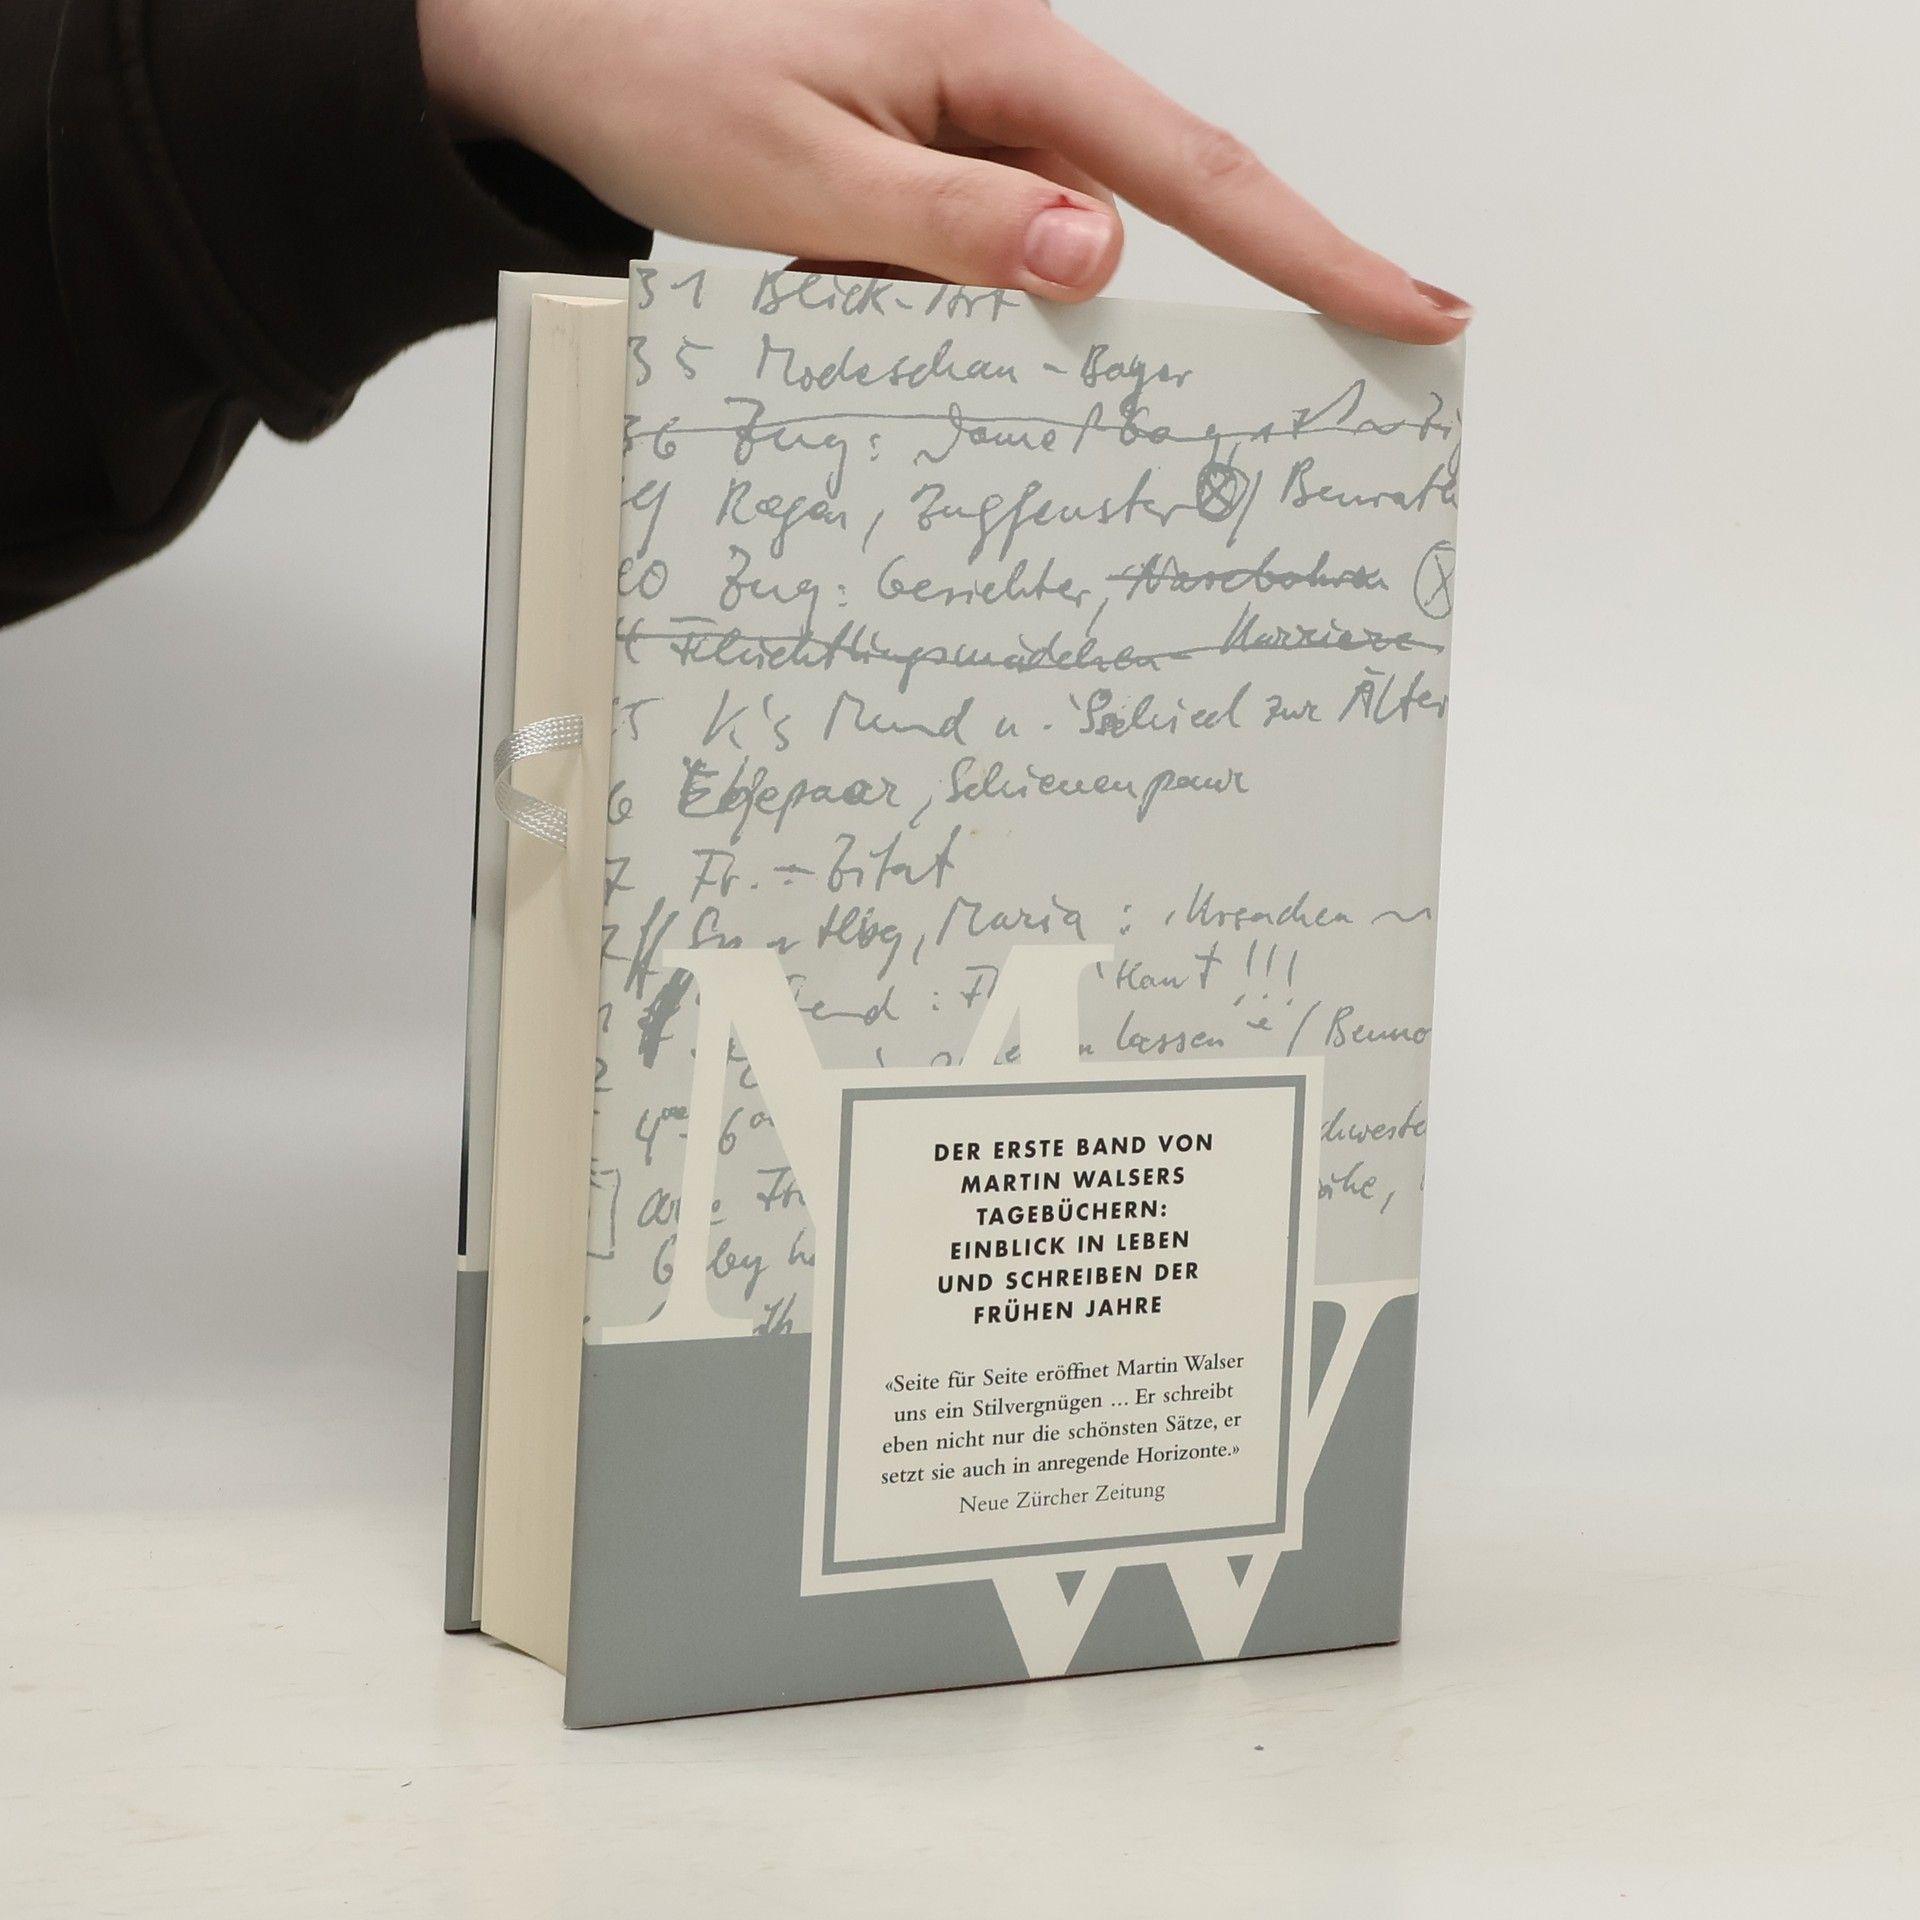 31 Blick-Ort
35 Modeschau - Bayer
36 Zug: Dame /
Regen, Zugfenster / Benrath
Zug: Gesichter, Nasebohren
Flüchtlingsmädchen - Karriere
K's Mund u. Schied zur Älter
6 Ehepaar, Schienenpaar
7 Fr. - Zitat
Hbg, Maria : Ursachen
Kant !!!
lassen / Benno
4 - 6
6 by
MW
DER ERSTE BAND VON
MARTIN WALSERS
TAGEBÜCHERN:
EINBLICK IN LEBEN
UND SCHREIBEN DER
FRÜHEN JAHRE
«Seite für Seite eröffnet Martin Walser
uns ein Stilvergnügen ... Er schreibt
eben nicht nur die schönsten Sätze, er
setzt sie auch in anregende Horizonte.»
Neue Zürcher Zeitung